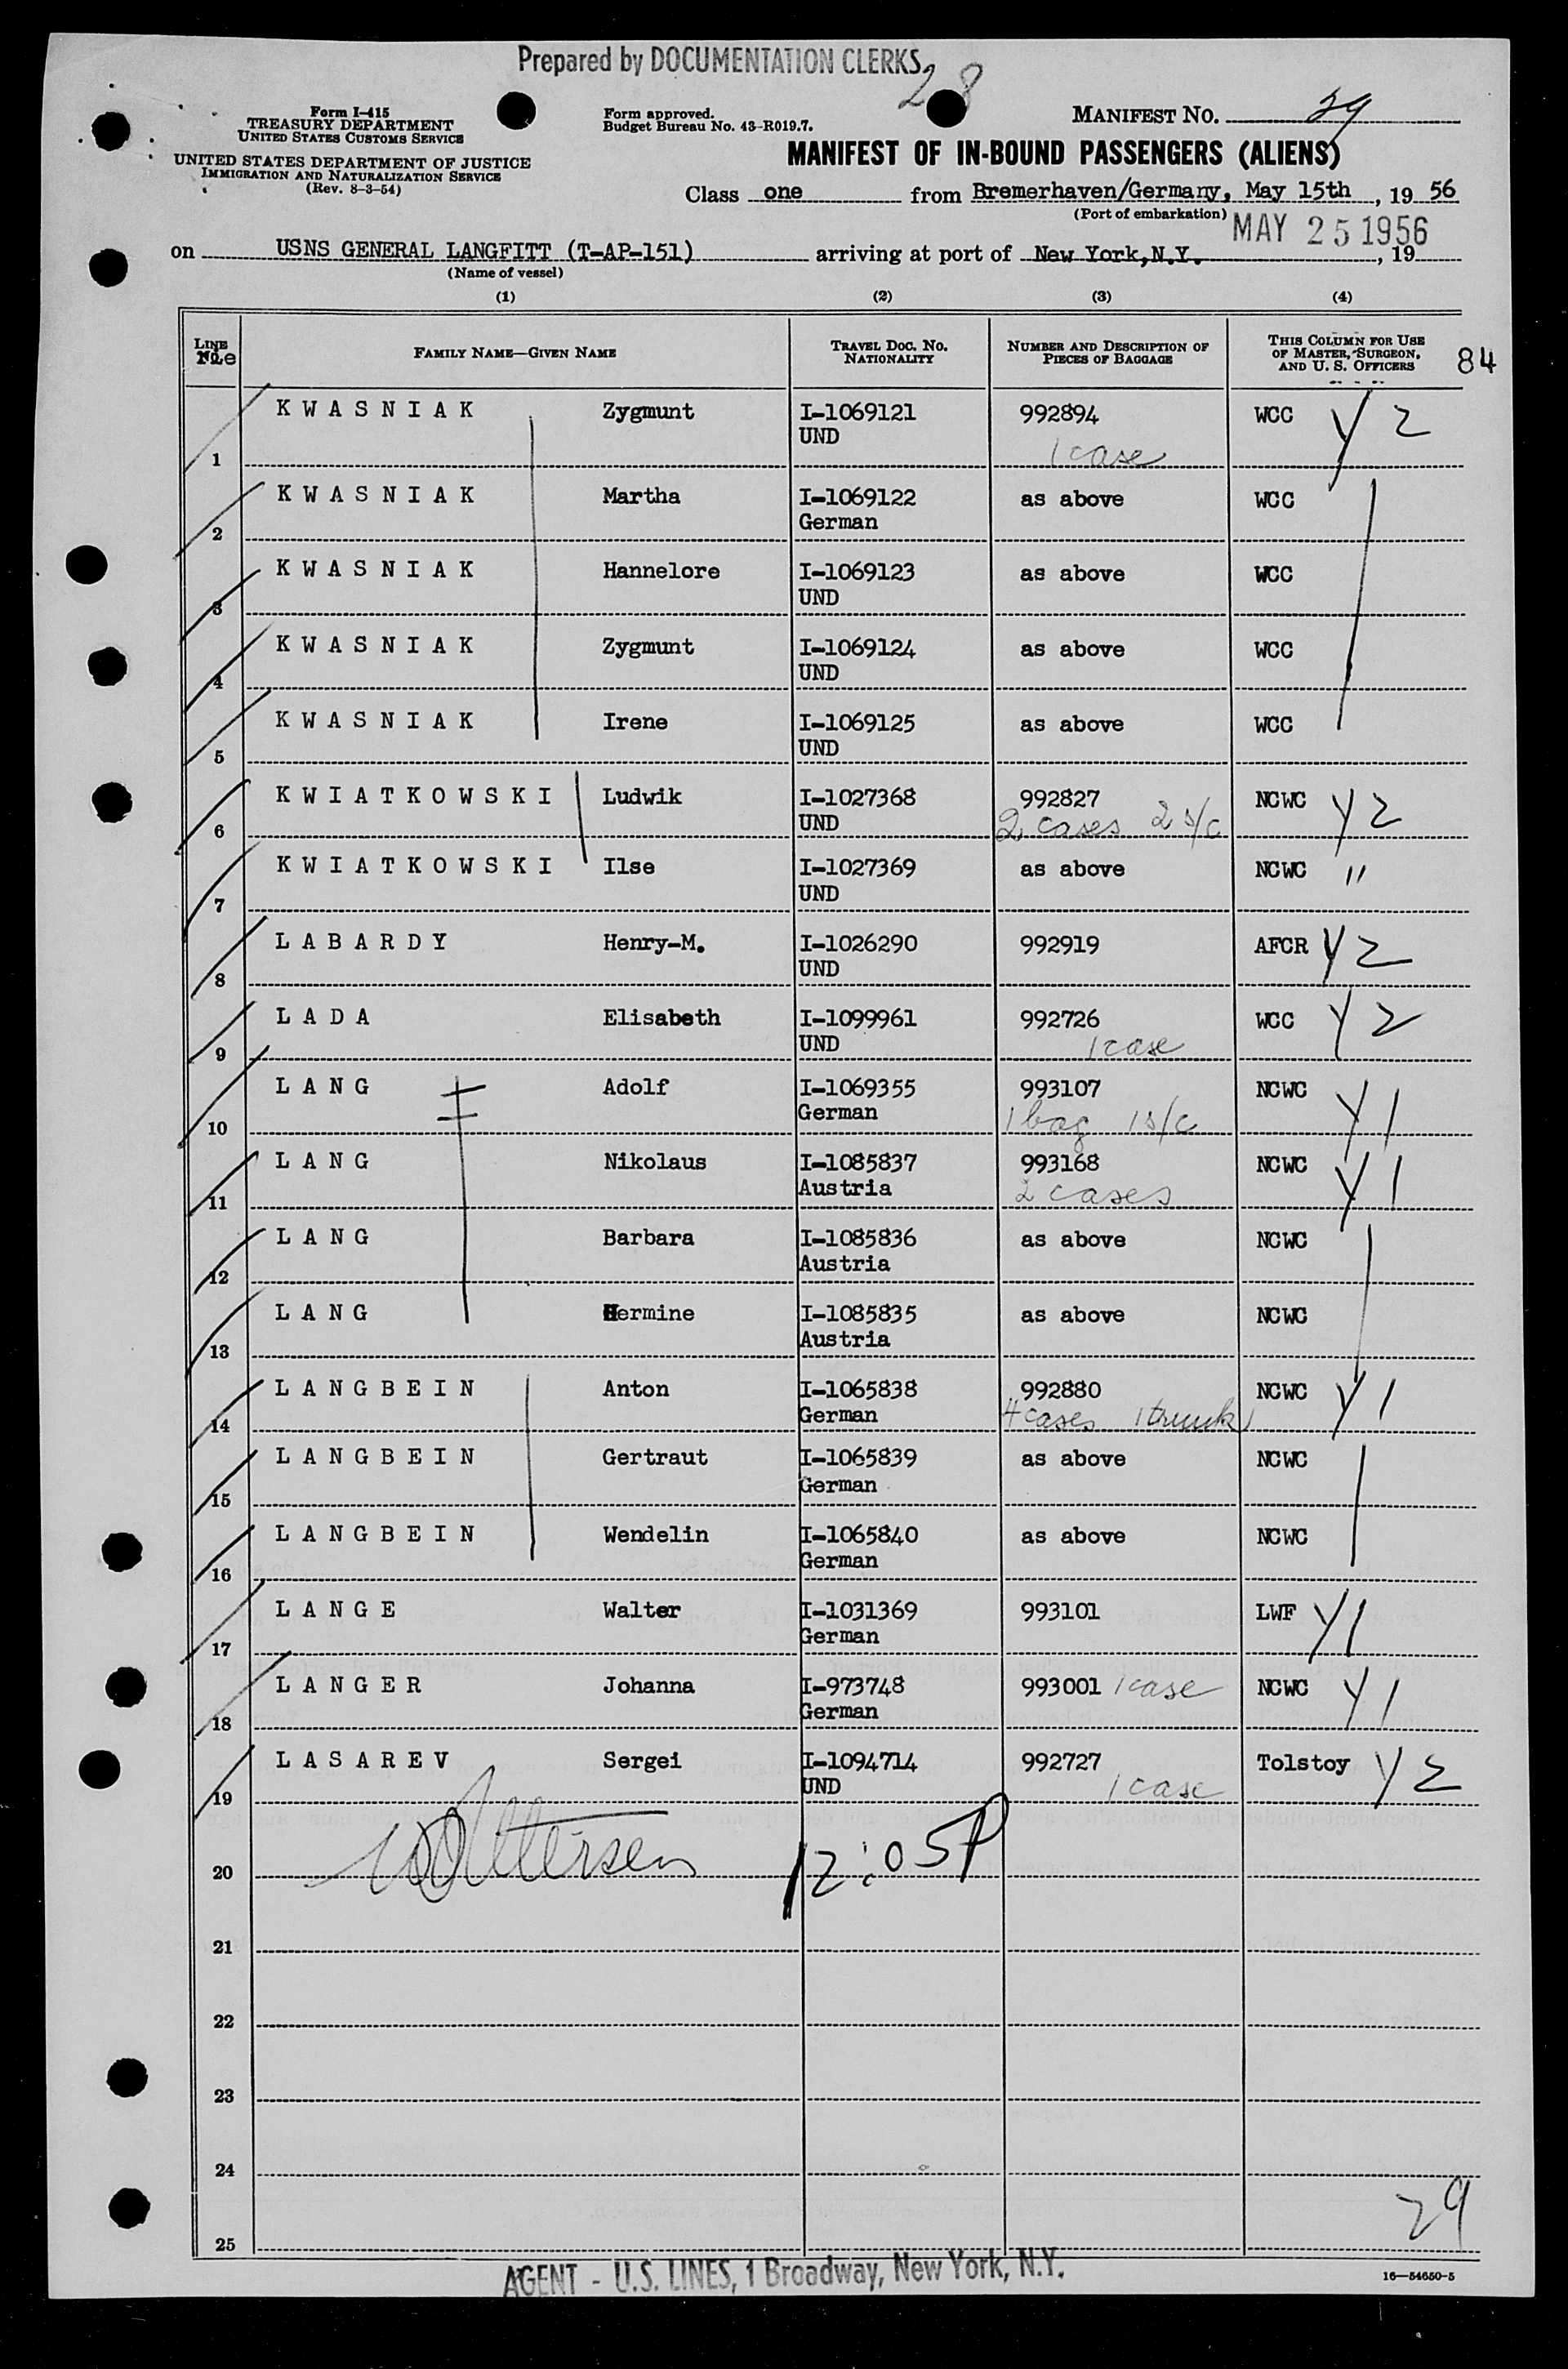 Prepared by DOCUMENTATION CLERKS
28
Form I-415
TREASURY DEPARTMENT
UNITED STATES CUSTOMS SERVICE
UNITED STATES DEPARTMENT OF JUSTICE
IMMIGRATION AND NATURALIZATION SERVICE
(Rev. 8-3-54)
Form approved.
Budget Bureau No. 43-R019.7.
MANIFEST No. 29
MANIFEST OF IN-BOUND PASSENGERS (ALIENS)
Class one from Bremerhaven/Germany, May 15th, 19 56
(Port of embarkation)
MAY 25 1956
on USNS GENERAL LANGFITT (T-AP-151) arriving at port of New York,N.Y. , 19
(Name of vessel)
(1) (2) (3) (4)
LINE No. FAMILY NAME—GIVEN NAME TRAVEL DOC. No. NATIONALITY NUMBER AND DESCRIPTION OF PIECES OF BAGGAGE THIS COLUMN FOR USE OF MASTER, SURGEON, AND U. S. OFFICERS 84
1 KWASNIAK Zygmunt I-1069121 992894 WCC Y2
UND 1 case
2 KWASNIAK Martha I-1069122 as above WCC
German
3 KWASNIAK Hannelore I-1069123 as above WCC
UND
4 KWASNIAK Zygmunt I-1069124 as above WCC
UND
5 KWASNIAK Irene I-1069125 as above WCC
UND
6 KWIATKOWSKI Ludwik I-1027368 992827 NCWC Y2
UND 2 cases 2 s/c
7 KWIATKOWSKI Ilse I-1027369 as above NCWC "
UND
8 LABARDY Henry-M. I-1026290 992919 AFCR Y2
UND
9 LADA Elisabeth I-1099961 992726 WCC Y2
UND 1 case
10 LANG Adolf I-1069355 993107 NCWC Y1
German 1 bag 1 s/c
11 LANG Nikolaus I-1085837 993168 NCWC Y1
Austria 2 cases
12 LANG Barbara I-1085836 as above NCWC
Austria
13 LANG Hermine I-1085835 as above NCWC
Austria
14 LANGBEIN Anton I-1065838 992880 NCWC Y1
German 4 cases 1 trunk
15 LANGBEIN Gertraut I-1065839 as above NCWC
German
16 LANGBEIN Wendelin I-1065840 as above NCWC
German
17 LANGE Walter I-1031369 993101 LWF Y1
German
18 LANGER Johanna I-973748 993001 1 case NCWC Y1
German
19 LASAREV Sergei I-1094714 992727 Tolstoy Y2
UND 1 case
20 12:05P
21
22
23
24
29
25
AGENT - U.S. LINES, 1 Broadway, New York, N.Y.
16—54650-5